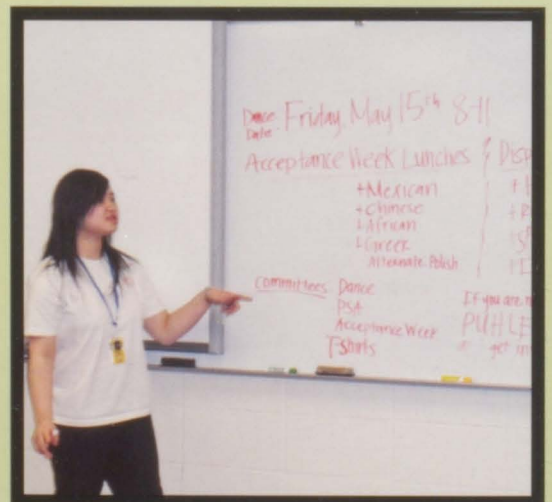 Dance Date: Friday, May 15th 8-11
Acceptance Week Lunches & Disp
+Mexican
+Chinese
+African
+Greek
Alternate: Polish
Committees Dance
PSA
Acceptance Week
T-Shirts
If you are n
PUHLE
get in